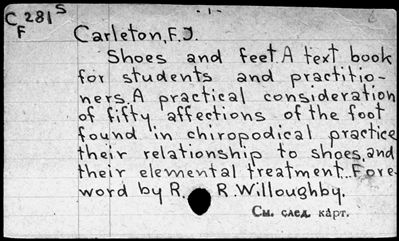 C 281 S - 1 -
F
Carleton, F.J.
Shoes and feet. A text book
for students and practitio-
ners. A practical consideration
of fifty affections of the foot
found in chiropodical practice
their relationship to shoes, and
their elemental treatment. Fore-
word by R. R. Willoughby.
См. след. карт.